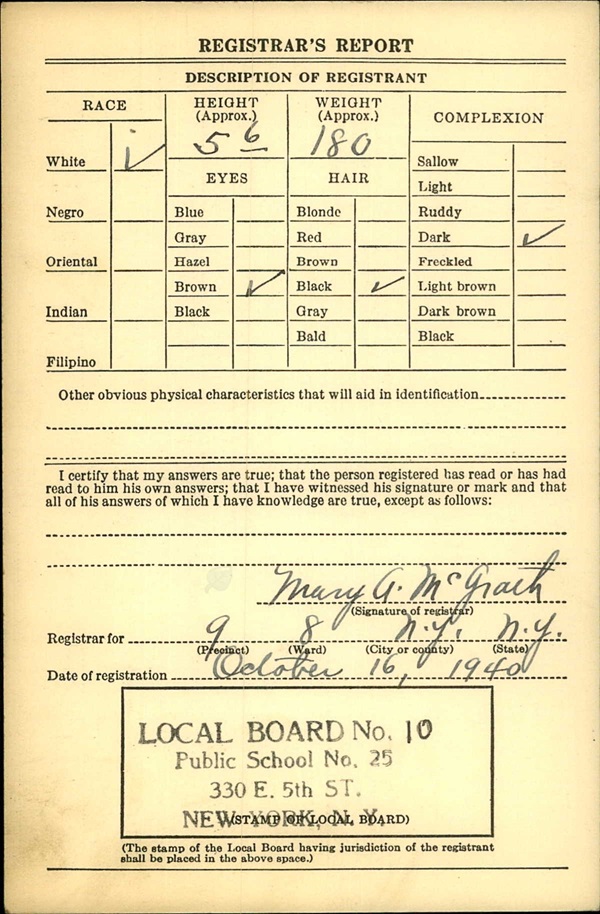 REGISTRAR'S REPORT
DESCRIPTION OF REGISTRANT
RACE
HEIGHT
(Approx.)
WEIGHT
(Approx.)
COMPLEXION
5 6
180
White ✓
EYES
HAIR
Sallow
Light
Negro
Blue
Blonde
Ruddy
Gray
Red
Dark ✓
Oriental
Hazel
Brown
Freckled
Brown ✓
Black ✓
Light brown
Indian
Black
Gray
Dark brown
Bald
Black
Filipino
Other obvious physical characteristics that will aid in identification
I certify that my answers are true; that the person registered has read or has had
read to him his own answers; that I have witnessed his signature or mark and that
all of his answers of which I have knowledge are true, except as follows:
Mary A. McGrath
(Signature of registrar)
Registrar for 9 8 N.Y. N.Y.
(Precinct) (Ward) (City or county) (State)
Date of registration October 16, 1940
LOCAL BOARD No. 10
Public School No. 25
330 E. 5th ST.
NEW YORK, N. Y.
(STAMP OF LOCAL BOARD)
(The stamp of the Local Board having jurisdiction of the registrant
shall be placed in the above space.)